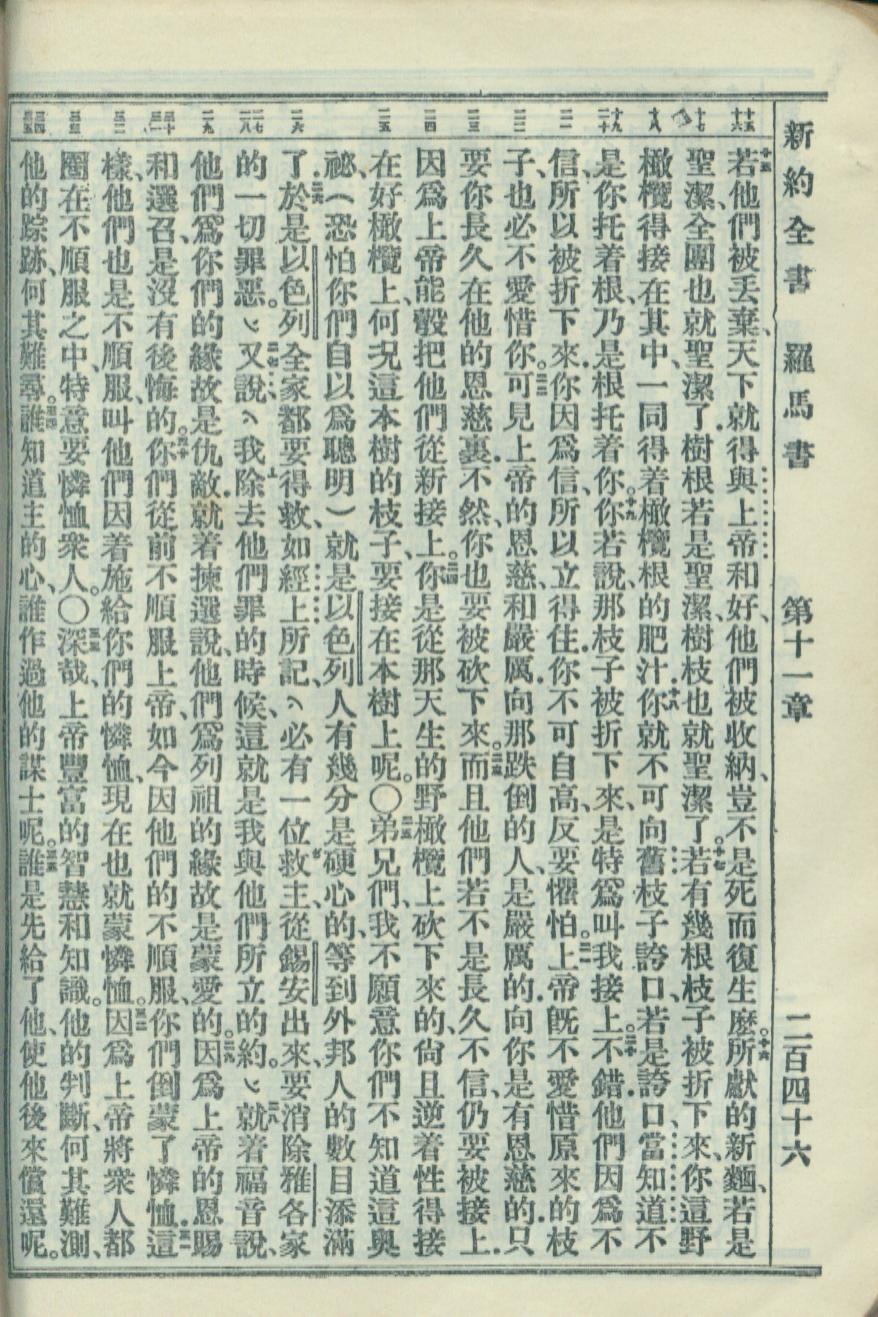 新約全書 羅馬書 第十一章 二百四十六
十五 十六 十七 十八 十九 二十 二一 二二 二三 二四 二五 二六 二七 二八 二九 三十 三一 三二 三三 三四 三五
十五若他們被丢棄、天下就得與上帝和好、他們被收納、豈不是死而復生麽。十六所獻的新麵、若是
聖潔、全團也就聖潔了.樹根若是聖潔、樹枝也就聖潔了。十七若有幾根枝子被折下來、你這野
橄欖得接在其中、一同得着橄欖根的肥汁、十八你就不可向舊枝子誇口、若是誇口、當知道不
是你托着根、乃是根托着你。十九你若說、那枝子被折下來、是特爲叫我接上。二十不錯.他們因爲不
信、所以被折下來.你因爲信、所以立得住.你不可自高、反要懼怕。二一上帝旣不愛惜原來的枝
子、也必不愛惜你。二二可見上帝的恩慈、和嚴厲.向那跌倒的人、是嚴厲的.向你是有恩慈的.只
要你長久在他的恩慈裏.不然、你也要被砍下來。二三而且他們若不是長久不信、仍要被接上.
因爲上帝能彀把他們從新接上。二四你是從那天生的野橄欖上砍下來的、尙且逆着性得接
在好橄欖上、何况這本樹的枝子、要接在本樹上呢。〇二五弟兄們、我不願意你們不知道這奧
祕、(恐怕你們自以爲聰明)就是以色列人有幾分是硬心的、等到外邦人的數目添滿
了.二六於是以色列全家都要得救.如經上所記、〈必有一位救主、從錫安出來、要消除雅各家
的一切罪惡。〉二七又說、〈我除去他們罪的時候、這就是我與他們所立的約。〉二八就着福音說、
他們爲你們的緣故是仇敵.就着揀選說、他們爲列祖的緣故是蒙愛的。二九因爲上帝的恩賜
和選召、是沒有後悔的。三十你們從前不順服上帝、如今因他們的不順服、你們倒蒙了憐恤.三一這
樣、他們也是不順服、叫他們因着施給你們的憐恤、現在也就蒙憐恤。三二因爲上帝將衆人都
圈在不順服之中、特意要憐恤衆人。〇三三深哉、上帝豐富的智慧和知識。他的判斷、何其難測、
他的踪跡、何其難尋。三四誰知道主的心、誰作過他的謀士呢。三五誰是先給了他、使他後來償還呢。